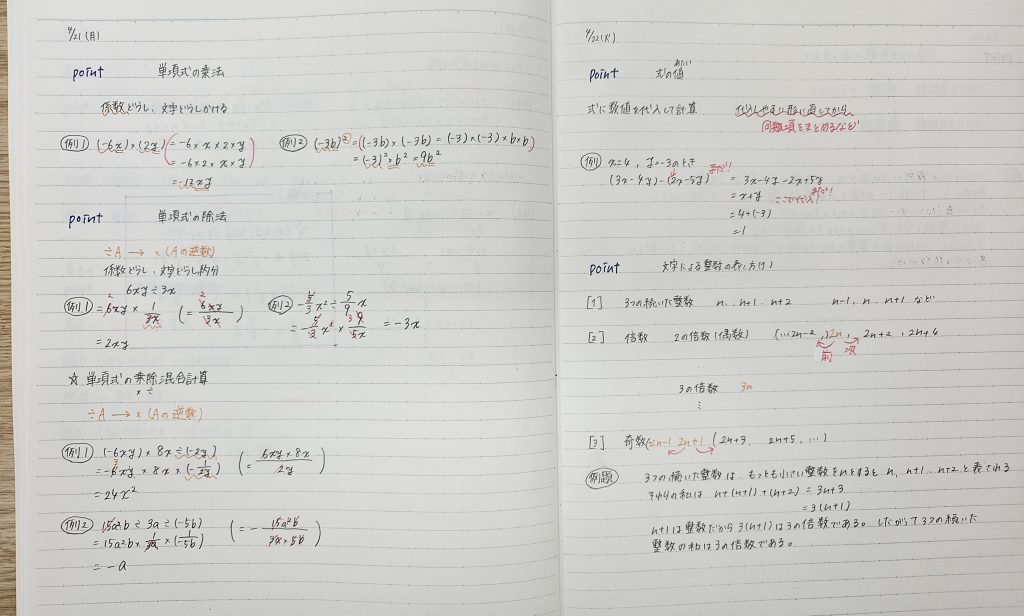 4/21(月)
point 単項式の乗法
係数どうし、文字どうしかける
例1 (-6x)×(2y) (= -6×x×2×y
= -6×2×x×y)
= -12xy
例2 (-3b)² = ((-3b)×(-3b) = (-3)×(-3)×b×b)
= (-3)²×b² = 9b²
point 単項式の除法
÷A → ×(Aの逆数)
係数どうし、文字どうし約分
6xy÷3x
例1 = 6xy × 1/3x (= 6xy/3x)
2 2
= 2xy
例2 -5/3x² ÷ 5/9x
= -5/3x² × 9/5x = -3x
3
☆ 単項式の乗除混合計算
× ÷
÷A → ×(Aの逆数)
例1 (-6xy)×8x÷(-2y)
= -6xy × 8x × (-1/2y) (= 6xy×8x/2y)
3
= 24x²
例2 15a²b ÷ 3a ÷ (-5b) (= - 15a²b/3a×5b)
= 15a²b × 1/3a × (1/-5b)
= -a
4/22(火)
point 式の値
あたい
式に数値を代入して計算 代入しやすい形に直してから
同類項をまとめるなど
例 x=4, y=-3のとき
(3x-4y)-(2x-5y) まだ!! = 3x-4y-2x+5y
= x+y ここで代入!
まだ!!
= 4+(-3)
= 1
point 文字による整数の表し方!
[1] 3つの続いた整数 n、n+1、n+2 n-1、n、n+1 など
[2] 倍数 2の倍数(偶数) (…2n-2,)2n, 2n+2, 2n+4
前 次
3の倍数 3n
⋮
[3] 奇数(2n-1 2n+1 (2n+3, 2n+5, …)
例題 3つの続いた整数は、もっとも小さい整数をnとするとn、n+1、n+2と表される
それらの和は n+(n+1)+(n+2) = 3n+3
= 3(n+1)
n+1は整数だから3(n+1)は3の倍数である。したがって3つの続いた
整数の和は3の倍数である。